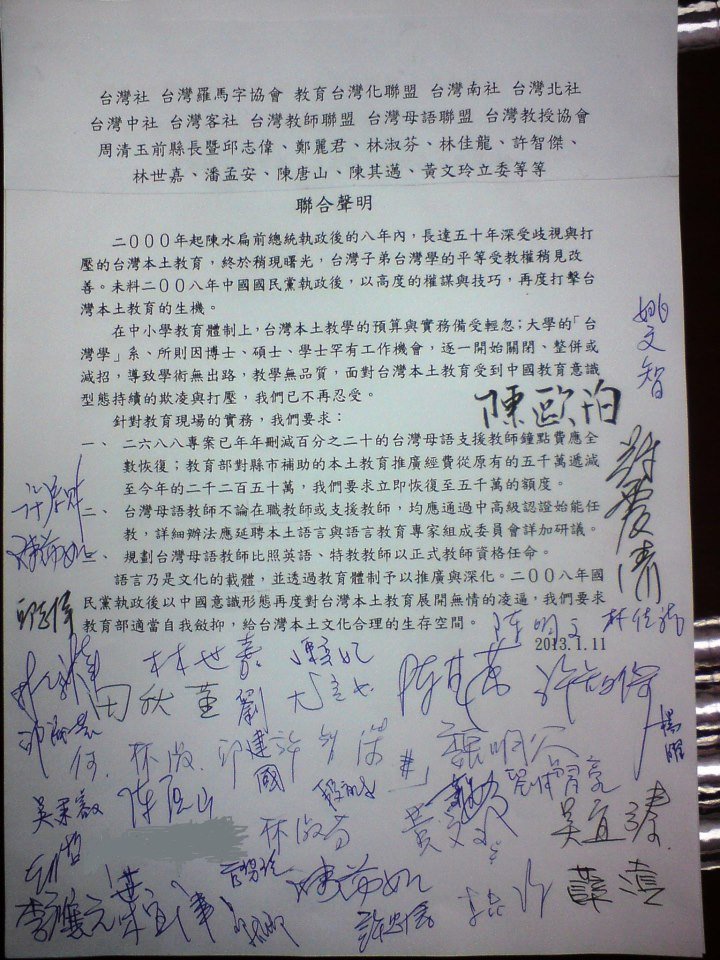 台灣社 台灣羅馬字協會 教育台灣化聯盟 台灣南社 台灣北社
台灣中社 台灣客社 台灣教師聯盟 台灣母語聯盟 台灣教授協會
周清玉前縣長暨邱志偉、鄭麗君、林淑芬、林佳龍、許智傑、
林世嘉、潘孟安、陳唐山、陳其邁、黃文玲立委等等
聯合聲明
二000年起陳水扁前總統執政後的八年內，長達五十年深受歧視與打
壓的台灣本土教育，終於稍現曙光，台灣子弟台灣學的平等受教權稍見改
善。未料二00八年中國國民黨執政後，以高度的權謀與技巧，再度打擊台
灣本土教育的生機。
在中小學教育體制上，台灣本土教學的預算與實務備受輕忽；大學的「台
灣學」系、所則因博士、碩士、學士罕有工作機會，逐一開始關閉、整併或
減招，導致學術無出路，教學無品質，面對台灣本土教育受到中國教育意識
型態持續的欺凌與打壓，我們已不再忍受。
針對教育現場的實務，我們要求：
一、 二六八八專案已年年刪減百分之二十的台灣母語支援教師鐘點費應全
數恢復；教育部對縣市補助的本土教育推廣經費從原有的五千萬遞減
至今年的二千二百五十萬，我們要求立即恢復至五千萬的額度。
二、 台灣母語教師不論在職教師或支援教師，均應通過中高級認證始能任
教，詳細辦法應延聘本土語言與語言教育專家組成委員會詳加研議。
三、 規劃台灣母語教師比照英語、特教教師以正式教師資格任命。
語言乃是文化的載體，並透過教育體制予以推廣與深化。二00八年國
民黨執政後以中國意識形態再度對台灣本土教育展開無情的凌逼，我們要求
教育部適當自我斂抑，給台灣本土文化合理的生存空間。
2013.1.11
姚文智
陳歐珀
林佳龍
陳明文
林世嘉
田秋堇
劉建國
許智傑
陳唐山
林淑芬
吳秉叡
吳宜臻
李應元
葉宜津
薛凌
楊曜